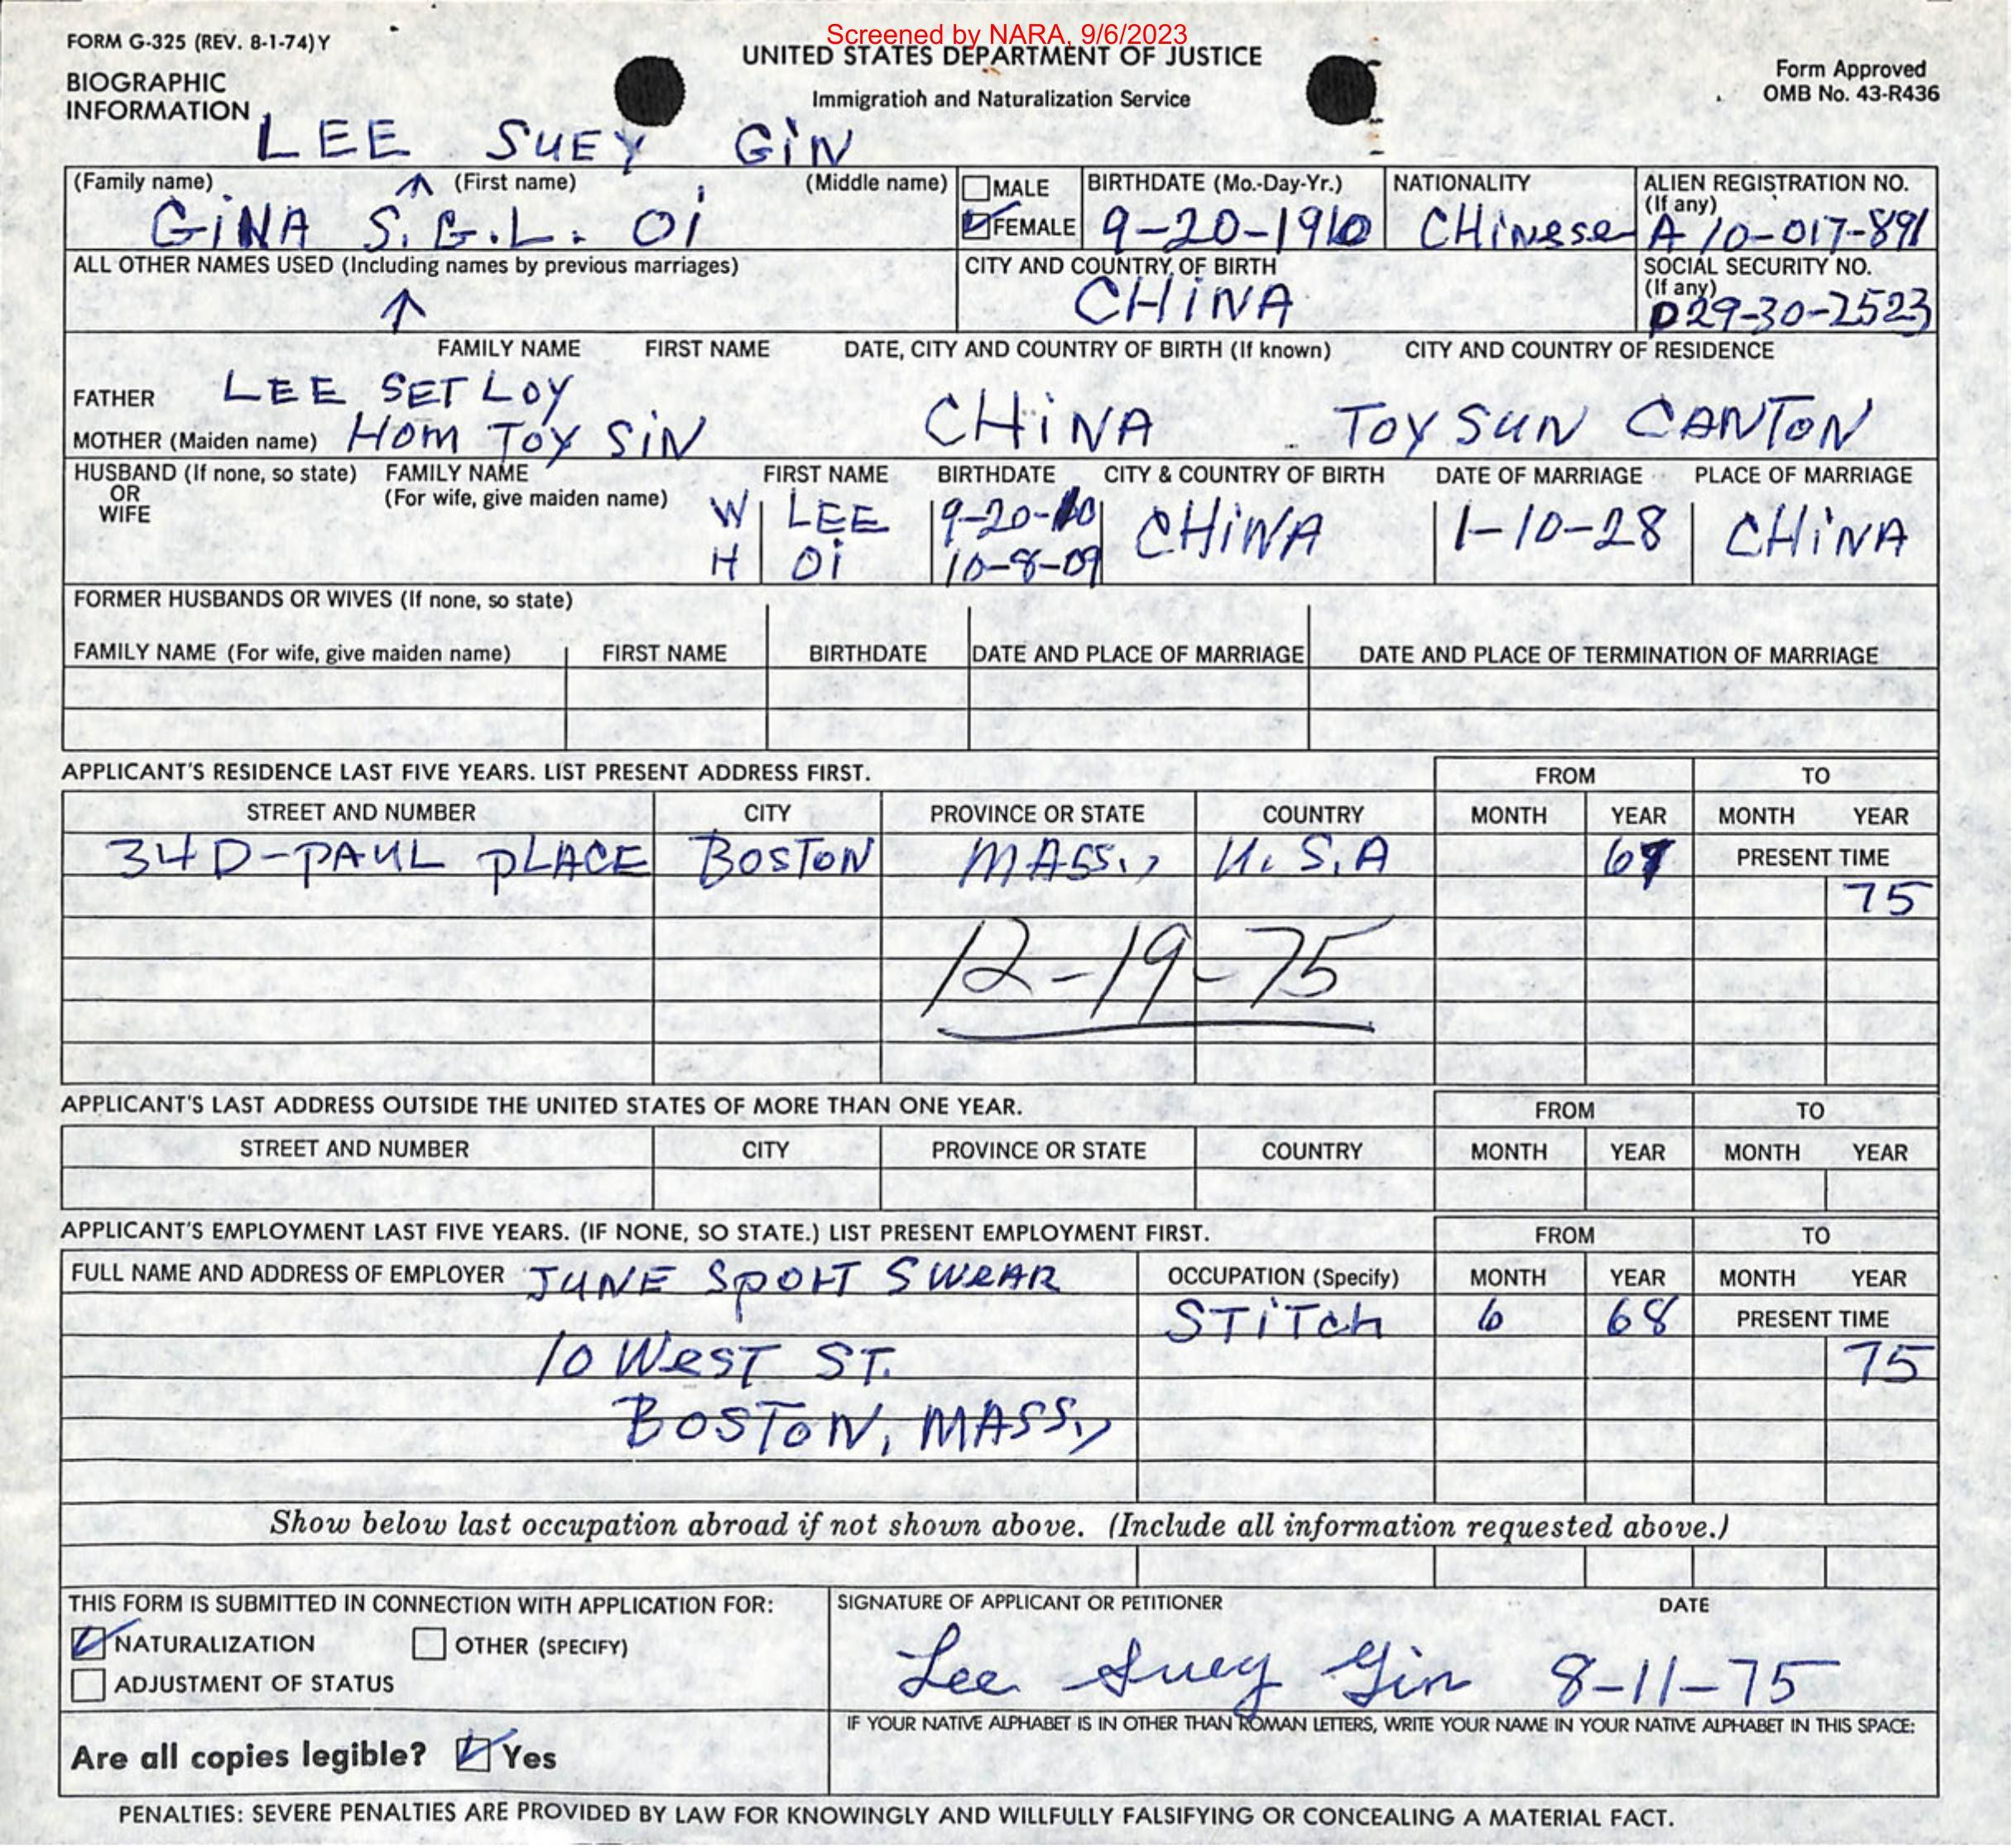 Screened by NARA, 9/6/2023
FORM G-325 (REV. 8-1-74)Y
UNITED STATES DEPARTMENT OF JUSTICE
Form Approved
OMB No. 43-R436
BIOGRAPHIC
INFORMATION
Immigration and Naturalization Service
LEE SUEY GiN
(Family name) (First name) (Middle name)
GiNA S.G.L. Oi
MALE
FEMALE
BIRTHDATE (Mo.-Day-Yr.)
9-20-1910
NATIONALITY
CHinese
ALIEN REGISTRATION NO.
(If any)
A 10-017-891
ALL OTHER NAMES USED (Including names by previous marriages)
↑
CITY AND COUNTRY OF BIRTH
CHiNA
SOCIAL SECURITY NO.
(If any)
029-30-2523
FAMILY NAME FIRST NAME DATE, CITY AND COUNTRY OF BIRTH (If known) CITY AND COUNTRY OF RESIDENCE
FATHER LEE SET LOY
MOTHER (Maiden name) HOM TOY SiN CHiNA TOYSUN CANTON
HUSBAND (If none, so state)
OR
WIFE
FAMILY NAME
(For wife, give maiden name)
FIRST NAME BIRTHDATE CITY & COUNTRY OF BIRTH DATE OF MARRIAGE PLACE OF MARRIAGE
W LEE 9-20-10 CHiNA 1-10-28 CHiNA
H Oi 10-8-09
FORMER HUSBANDS OR WIVES (If none, so state)
FAMILY NAME (For wife, give maiden name) FIRST NAME BIRTHDATE DATE AND PLACE OF MARRIAGE DATE AND PLACE OF TERMINATION OF MARRIAGE
APPLICANT'S RESIDENCE LAST FIVE YEARS. LIST PRESENT ADDRESS FIRST. FROM TO
STREET AND NUMBER CITY PROVINCE OR STATE COUNTRY MONTH YEAR MONTH YEAR
34D-PAUL PLACE BOSTON MASS., U.S.A PRESENT TIME
75
12-19-75
APPLICANT'S LAST ADDRESS OUTSIDE THE UNITED STATES OF MORE THAN ONE YEAR. FROM TO
STREET AND NUMBER CITY PROVINCE OR STATE COUNTRY MONTH YEAR MONTH YEAR
APPLICANT'S EMPLOYMENT LAST FIVE YEARS. (IF NONE, SO STATE.) LIST PRESENT EMPLOYMENT FIRST. FROM TO
FULL NAME AND ADDRESS OF EMPLOYER JUNE SPORT SWEAR OCCUPATION (Specify) MONTH YEAR MONTH YEAR
STiTch 6 68 PRESENT TIME
10 WesT ST. 75
BOSTON, MASS.,
Show below last occupation abroad if not shown above. (Include all information requested above.)
THIS FORM IS SUBMITTED IN CONNECTION WITH APPLICATION FOR:
NATURALIZATION OTHER (SPECIFY)
ADJUSTMENT OF STATUS
SIGNATURE OF APPLICANT OR PETITIONER DATE
Lee Suey Gin 8-11-75
IF YOUR NATIVE ALPHABET IS IN OTHER THAN ROMAN LETTERS, WRITE YOUR NAME IN YOUR NATIVE ALPHABET IN THIS SPACE:
Are all copies legible? Yes
PENALTIES: SEVERE PENALTIES ARE PROVIDED BY LAW FOR KNOWINGLY AND WILLFULLY FALSIFYING OR CONCEALING A MATERIAL FACT.